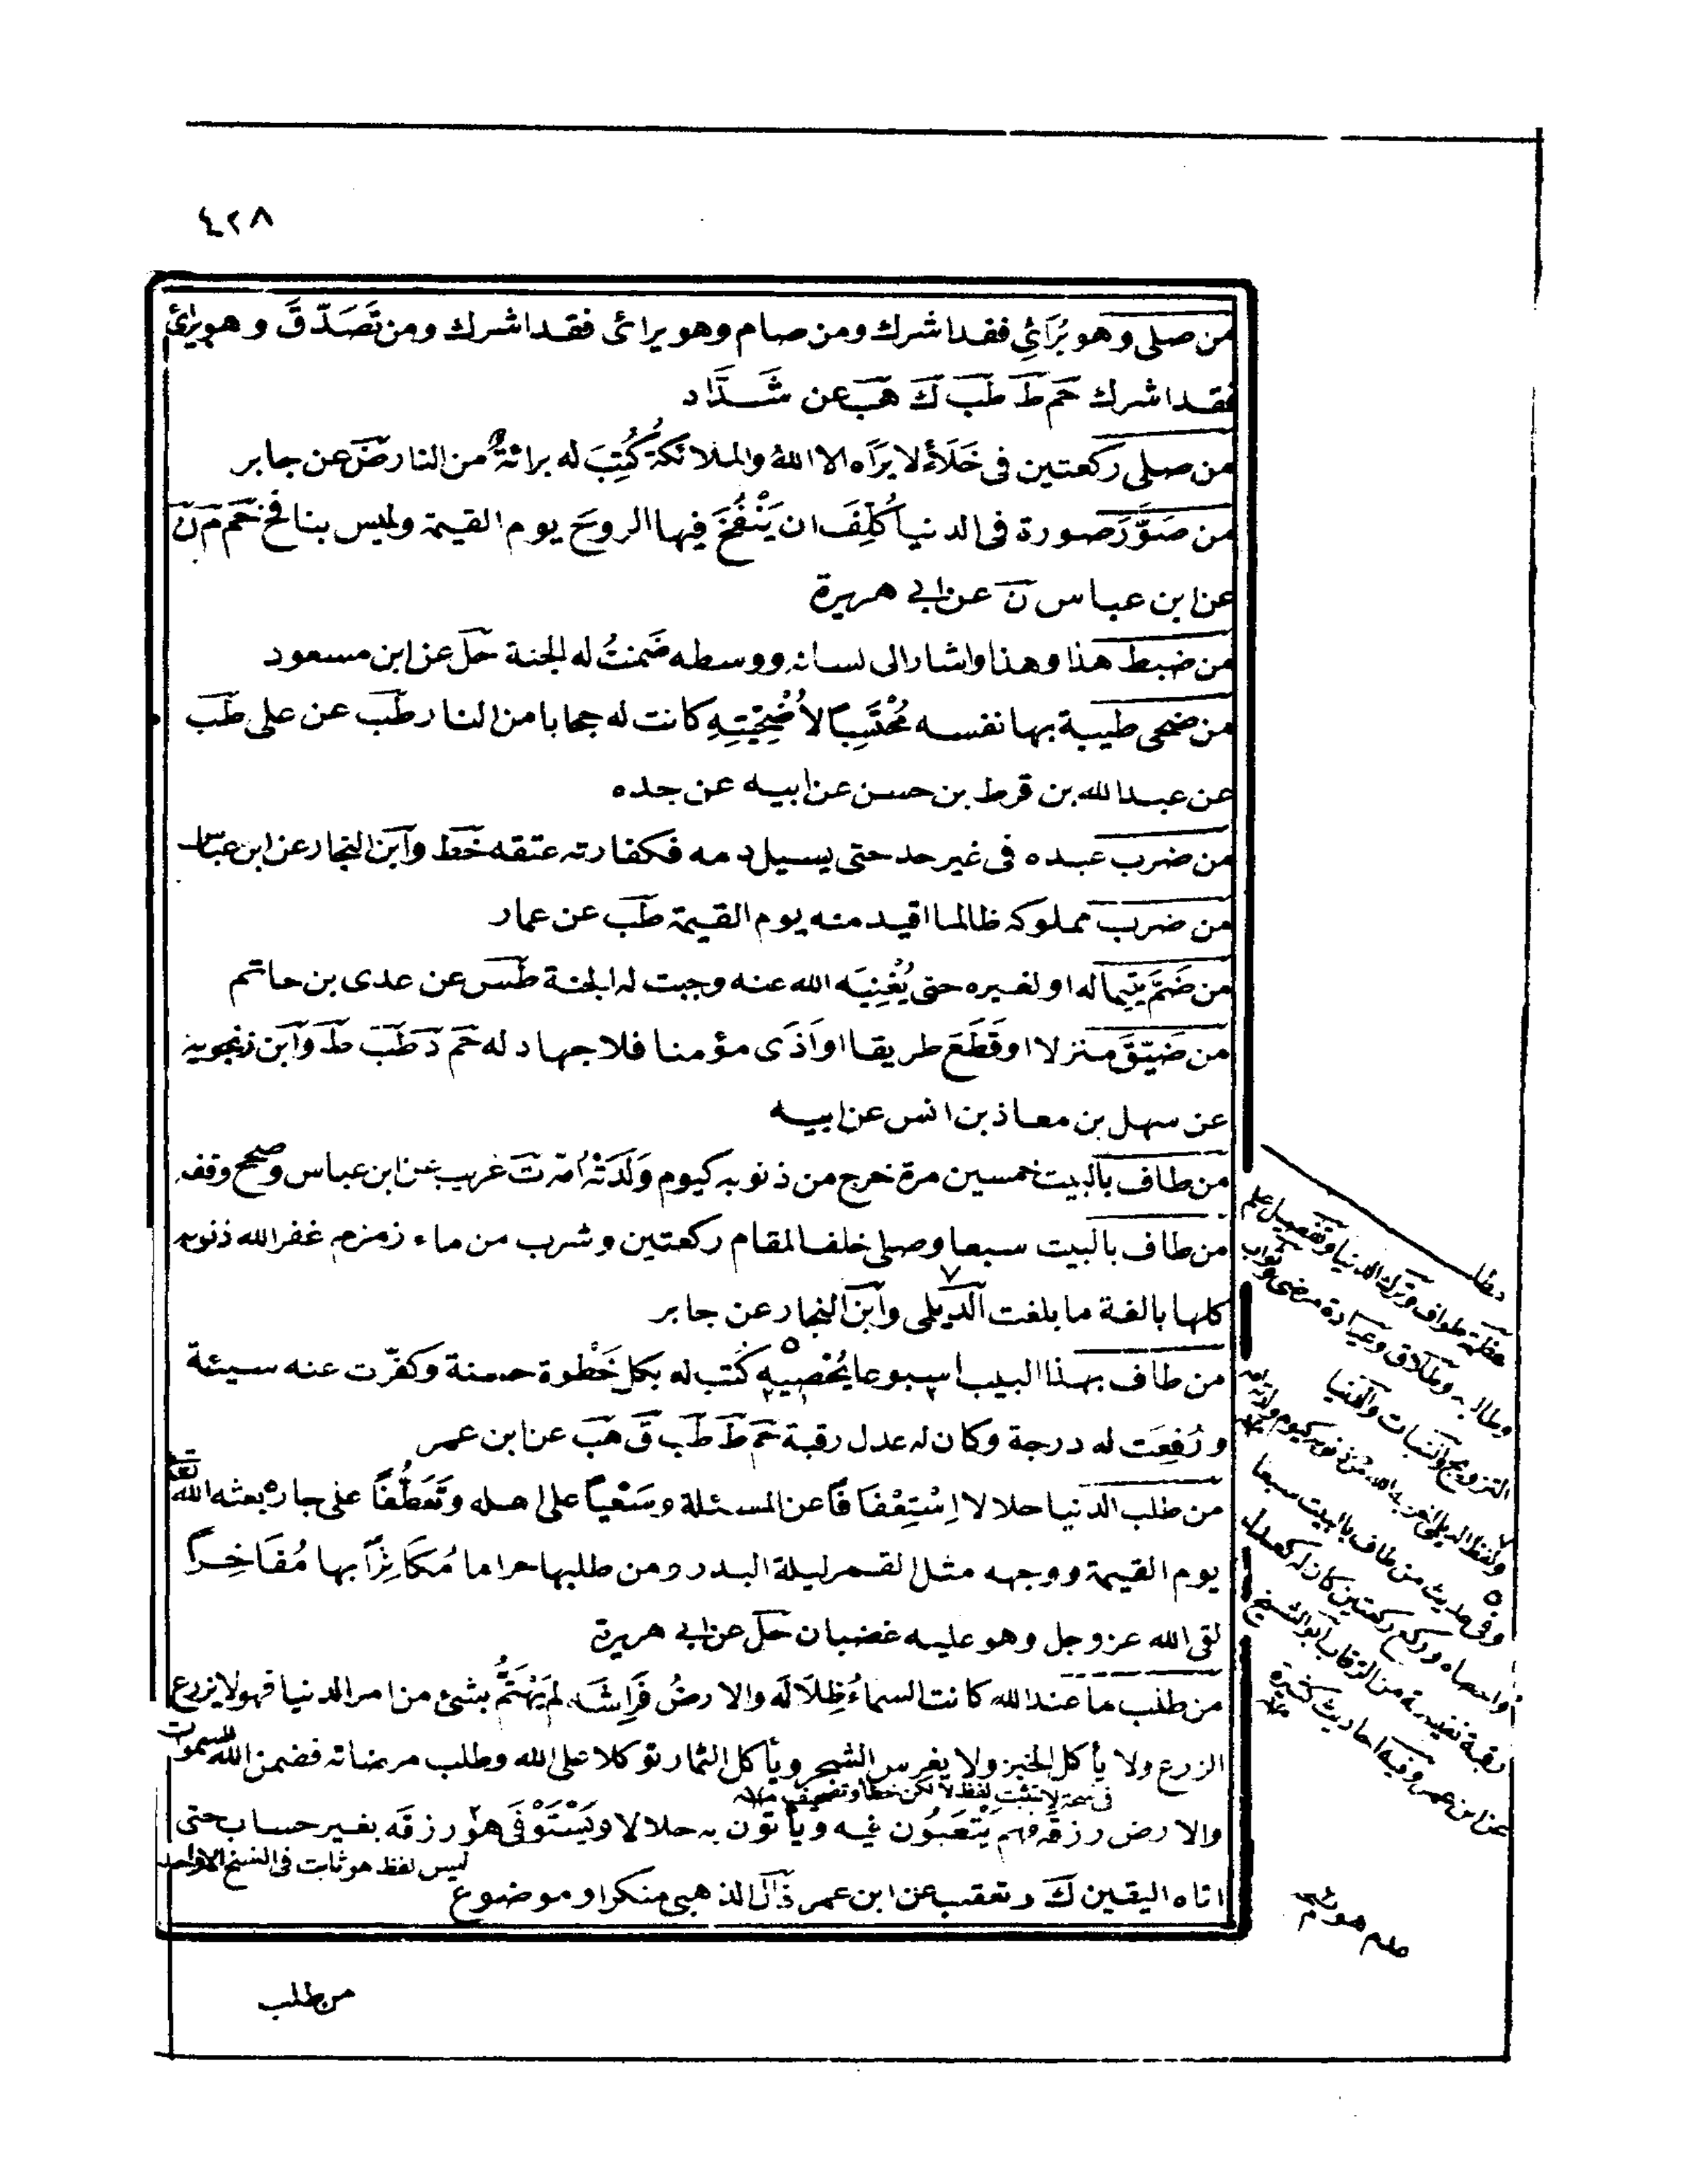 ٤٢٨
من صلى وهو يُرَائِي فقد اشرك ومن صام وهو يرائى فقد اشرك ومن تَصَدَّقَ وهو يرائى
فقد اشرك حم ط طب ك هب عن شَدَّاد
من صلى ركعتين فى خَلَاءٍ لا يَرَاه الا اللهُ والملائكةُ كُتِبَ له برائةٌ من النار ض عن جابر
من صَوَّرَ صورة فى الدنيا كُلِّفَ ان يَنْفُخَ فيها الروحَ يوم القيمة وليس بنافخ خ حم م ن
عن ابن عباس ن عن ابى هريرة
من ضبط هذا وهذا واشار الى لسانه ووسطه ضَمِنتُ له الجنة حل عن ابن مسعود
من ضحى طيبة بها نفسه مُحْتَسِبًا لأُضْحِيَّتِهِ كانت له حجابا من النار طب عن على طب
عن عبد الله بن قرط بن حسن عن ابيه عن جده
من ضرب عبده فى غير حد حتى يسيل دمه فكفارته عتقه خط وابن النجار عن ابن عباس
من ضرب مملوكه ظالما اقيد منه يوم القيمة طب عن عمار
من ضَمَّ يتيما له او لغيره حتى يُغْنِيَه الله عنه وجبت له الجنة طس عن عدى بن حاتم
من ضَيَّقَ منزلا او قَطَعَ طريقا او اَذَى مؤمنا فلا جهاد له حم د طب ط وابن زنجويه
عن سهل بن معاذ بن انس عن ابيه
من طاف بالبيت خمسين مرة خرج من ذنوبه كيوم وَلَدَتْهُ اُمّه ت غريب عن ابن عباس وصحح وقفه
من طاف بالبيت سبعا وصلى خلف المقام ركعتين وشرب من ماء زمزم غفر الله ذنوبه
كلها بالغة ما بلغت الديلمى وابن النجار عن جابر
من طاف بهذا البيت اسبوعا يُحْصِيهِ كُتب له بكل خَطْوة حسنة وكفّرت عنه سيئة
ورُفِعَت له درجة وكان له عدل رقبة حم ط طب ق هب عن ابن عمر
من طلب الدنيا حلالا اِسْتِعْفَافًا عن المسئلة وسَعْيًا على اهله وتَعَطُّفًا على جاره بعثه الله تعالى
يوم القيمة ووجهه مثل القمر ليلة البدر ومن طلبها حراما مُكَاثِرًا بها مُفَاخِرًا
لقى الله عز وجل وهو عليه غضبان حل عن ابى هريرة
من طلب ما عند الله كانت السماءُ ظِلَالَه والارضُ فِرَاشَه لم يَهْتَمَّ بشئ من امر الدنيا فهو لا يزرع
الزرع ولا يأكل الخبز ولا يغرس الشجر ويأكل الثمار توكلا على الله وطلب مرضاته فضمن الله السموات
فى نسخة لا تثبت لفظ لا لكن خطأ وتصحيف منه
والارض رزقه فهم يَتْعَبُون فيه ويأتون به حلالا ويَسْتَوْفَى هو رزقه بغير حساب حتى
ليس لفظ هو ثابت فى النسخ الا واحد
اتاه اليقين ك وتعقب عن ابن عمر قال الذهبى منكر او موضوع
مطلب
عظمة طواف وترك الدنيا وتفصيل علم
وطالبه وطلاق وعيادة مرضى وثواب
التزويج والنبات والفتيا
ولفظ الديلمى اخرجه الله من ذنوبه كيوم ولدته امه
وفى حديث من طاف بالبيت سبعا
واحصاه وركع ركعتين كان له كعدل
رقبة نفيسة من الرقاب ابو الشيخ
عن ابن عمر وفيه احاديث كثيرة
من طلب